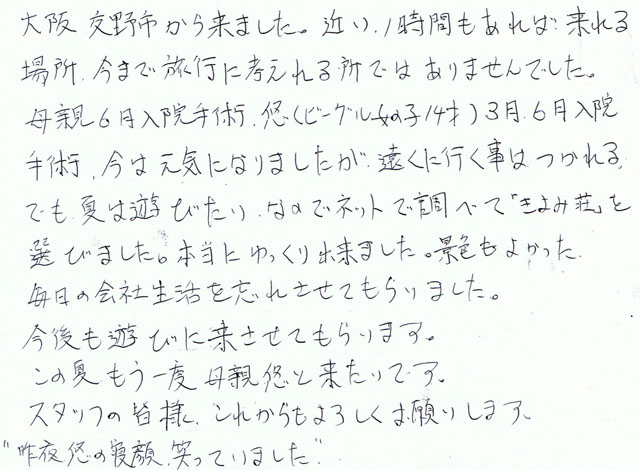 大阪 交野市から来ました。近い、1時間もあれば 来れる
場所、今まで旅行に考えれる所ではありませんでした。
母親6月入院手術、悠(ビーグル女の子14才)3月、6月入院
手術、今は元気になりましたが、遠くに行く事はつかれる、
でも、夏は遊びたい、なのでネットで調べて「きよみ荘」を
選びました。本当にゆっくり出来ました。景色もよかった、
毎日の会社生活を忘れさせてもらいました。
今後も遊びに来させてもらいます。
この夏もう一度 母親 悠と来たいです。
スタッフの皆様、これからもよろしくお願いします。
"昨夜悠の寝顔、笑っていました"